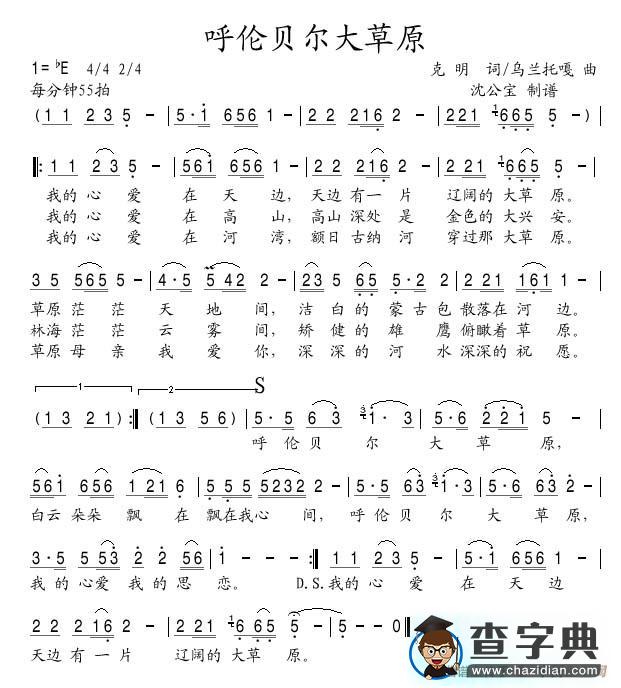 呼伦贝尔大草原
1=♭E 4/4 2/4 克 明 词/乌兰托嘎 曲
每分钟55拍 沈公宝 制谱
(1 1 2 3 5 - | 5·1 656 1 - | 2 2 216 2 - | 2 21 6 665 5 - ) |
1 1 2 3 5 - | 561 656 1 - | 2 2 216 2 - | 2 21 6 665 5 - |
我的 心 爱 在 天 边, 天边 有 一 片 辽阔的 大草 原。
我的 心 爱 在 高 山, 高山 深处 是 金色的 大兴 安。
我的 心 爱 在 河 湾, 额日 古纳 河 穿过那 大草 原。
3 5 565 5 - | 4·5 5 42 2 - | 23 5 65 5·2 | 2 221 161 1 - |
草原 茫 茫 天 地 间, 洁 白 的 蒙 古 包 散落在 河 边。
林海 茫 茫 云 雾 间, 矫 健 的 雄 鹰 俯瞰着 草 原。
草原 母 亲 我 爱 你, 深 深 的 河 水 深深的 祝 愿。
1 2 S
(1 3 2 1) :|| (1 3 5 6) | 5·5 6 3 3 1·3 | 5·6 2 21 5 - |
呼 伦 贝 尔 大 草 原,
561 656 1 21 6 | 5·5 5 5 5232 2 - | 5·5 63 3 1·3 | 5·6 63 2 - |
白云 朵朵 飘 在 飘在我心 间, 呼 伦 贝 尔 大 草 原,
3·5 5 53 2 2 56 | 1 - - - :|| 1 1 2 3 5 - | 5·1 656 1 - |
我 的 心爱 我 的 思 恋。 D.S.我的 心 爱 在 天 边
2 2 216 2 - | 2 21 6 665 5 - | 5 - - 0 ||
天边 有 一 片 辽阔的 大草 原。
查字典
www.chazidian.com